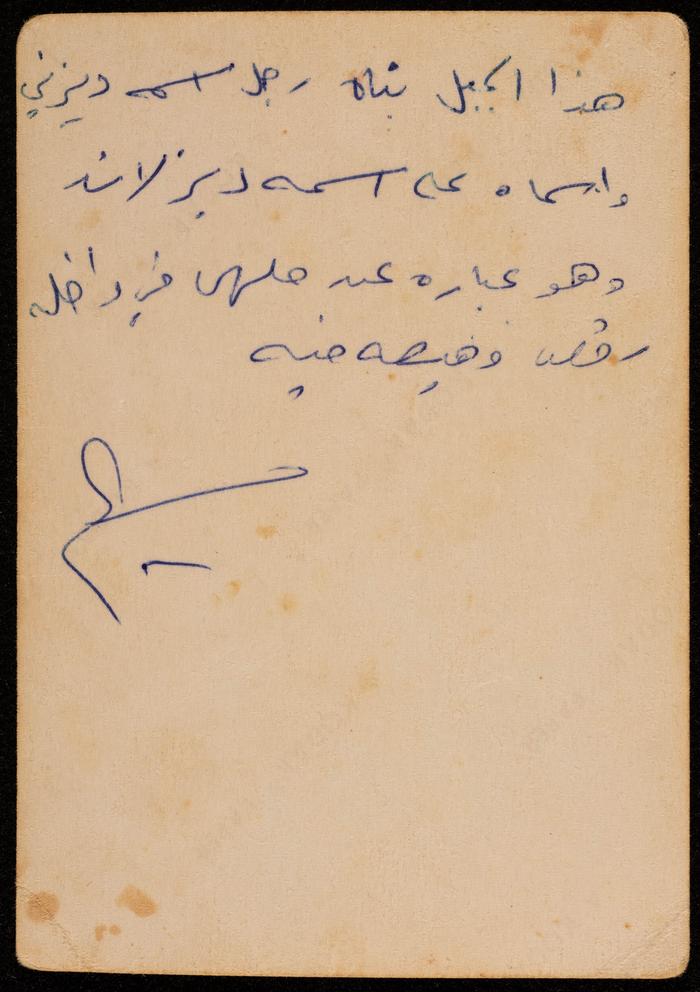 هذا الجبل بناه رجل اسمه ديزني
واسماه على اسمه ديزلاند
وهو عباره عن ملهى في داخله
رقص